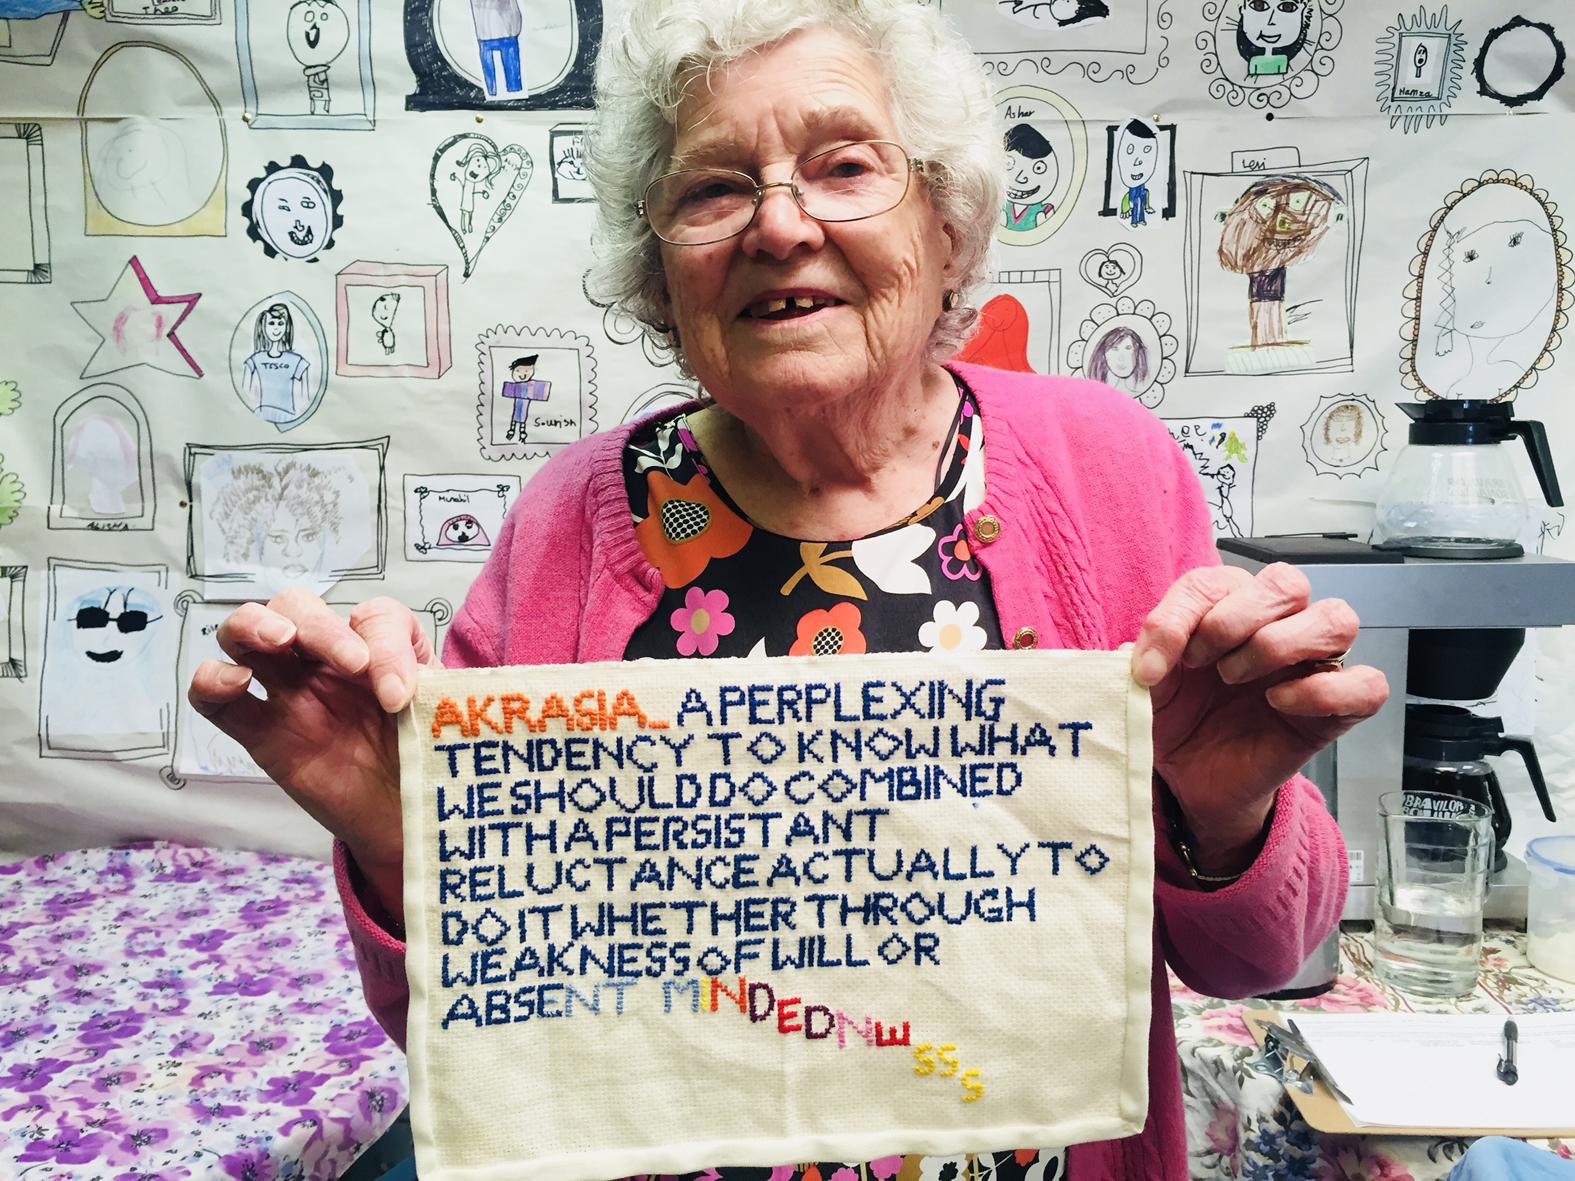 Theo
Ashar
Hamza
Lexi
TESCO
Sourish
Munabil
AKRASIA_ A PERPLEXING
TENDENCY TO KNOW WHAT
WE SHOULD DO COMBINED
WITH A PERSISTANT
RELUCTANCE ACTUALLY TO
DO IT WHETHER THROUGH
WEAKNESS OF WILL OR
ABSENT MINDEDNESSS